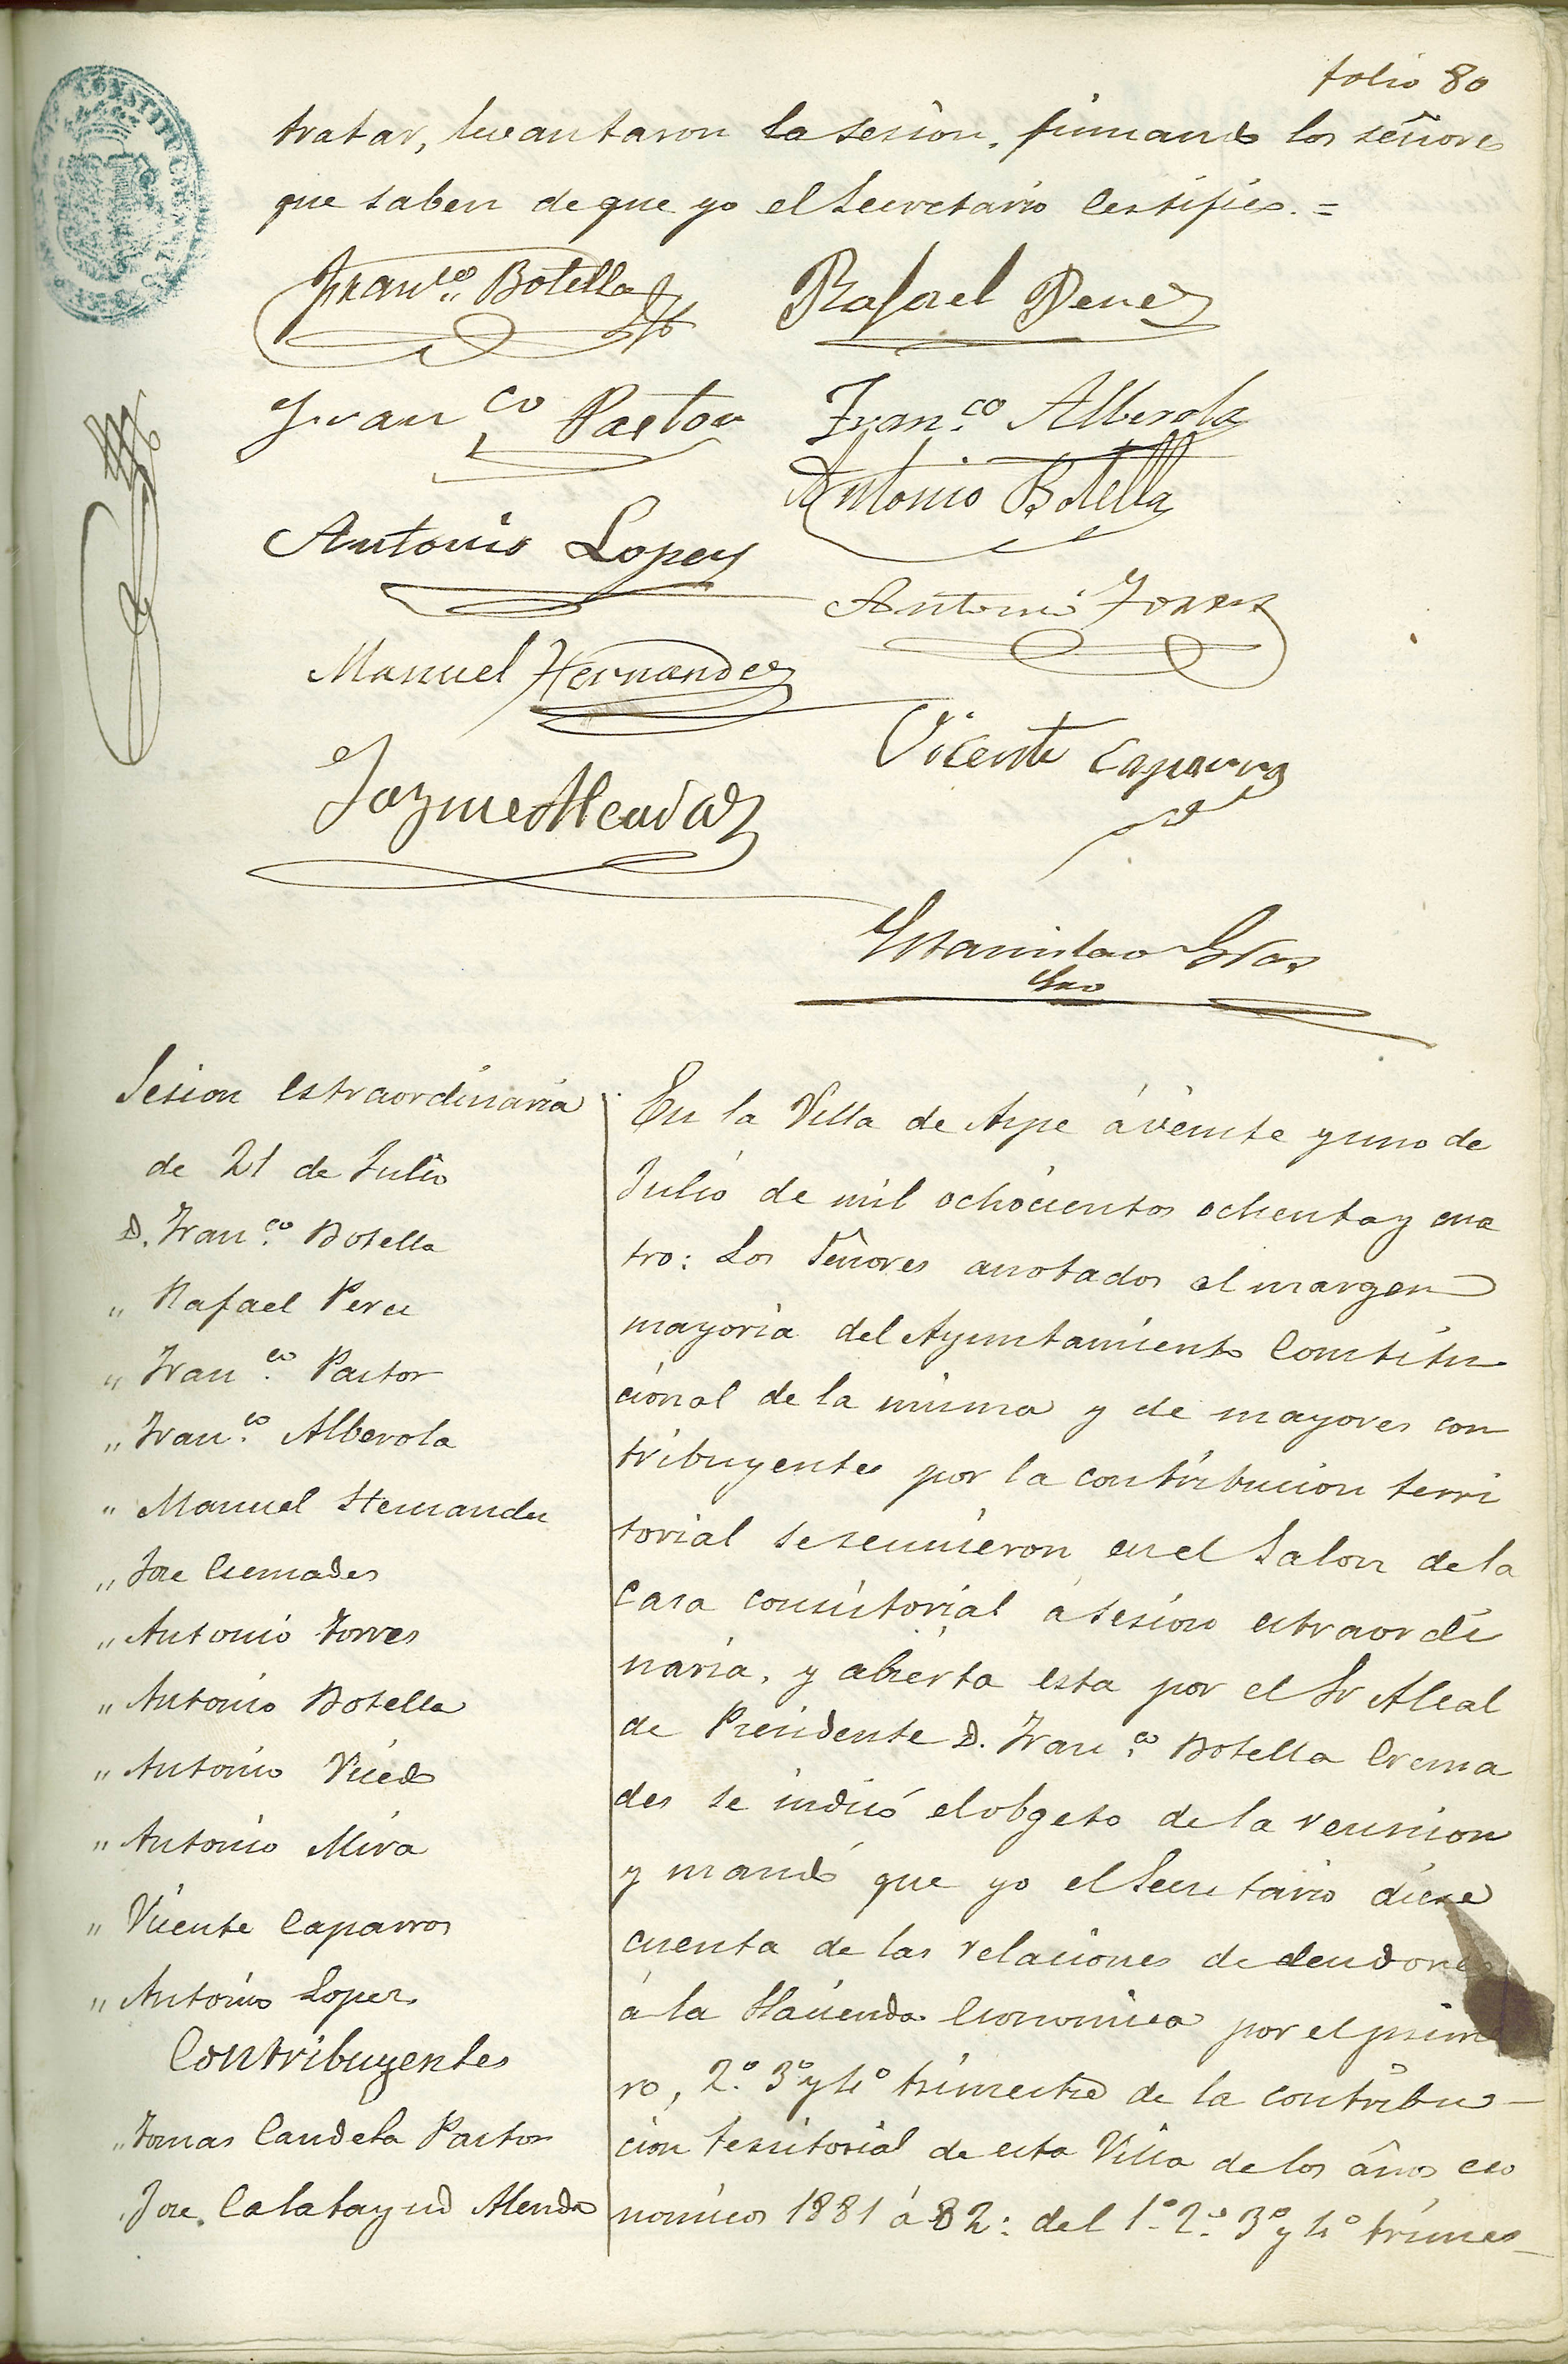 folio 80
tratar, levantaron la sesion, firmando los señores
que saben de que yo el Secretario certifico. =
Fran.co Botella
Rafael Perez
Fran.co Pastor
Fran.co Alberola
Antonio Botella
Antonio Lopez
Antonio Torres
Manuel Hernandez
Vicente Caparros
Jayme Alenda
Estanislao Gras
Srio
Sesion estraordinaria
de 21 de Julio
D. Fran.co Botella
" Rafael Perez
" Fran.co Pastor
" Fran.co Alberola
" Manuel Hernandez
" Jose Cremades
" Antonio Torres
" Antonio Botella
" Antonio Vicedo
" Antonio Mira
" Vicente Caparros
" Antonio Lopez
Contribuyentes
" Tomas Candela Pastor
" Jose Calatayud Alenda
En la Villa de Aspe á veinte y uno de
Julio de mil ochocientos ochenta y cua
tro: Los Señores anotados al margen
mayoria del Ayuntamiento Constitu
cional de la misma y de mayores con
tribuyentes por la contribucion terri
torial se reunieron en el Salon de la
Casa consistorial á sesion estraordi
naria, y abierta esta por el Sr Alcal
de Presidente D. Fran.co Botella Crema
des se indicó el obgeto de la reunion
y mandó que yo el Secretario diese
cuenta de las relaciones de deudores
á la Hacienda Economica por el prime
ro, 2.º 3º y 4º trimestre de la contribu-
cion territorial de esta Villa de los años eco
nomicos 1881 á 82: del 1º 2.º 3º y 4º trimes-